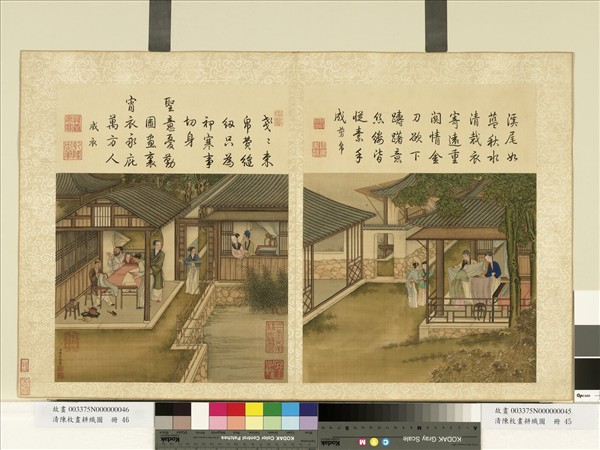 溪尾如
藍秋水
清裁衣
寄遠重
閨情金
刀欲下
躊躇意
絲縷皆
從素手
成 剪帛
戔〻束
帛費縫
紉只為
祁寒事
切身
聖意憂勤
圖畫裏
宵衣永庇
萬方人
成衣
故畫 003375N000000046
清陳枚畫耕織圖 冊 46
故畫 003375N000000045
清陳枚畫耕織圖 冊 45
KODAK Color Control Patches
KODAK Gray Scale
Kodak